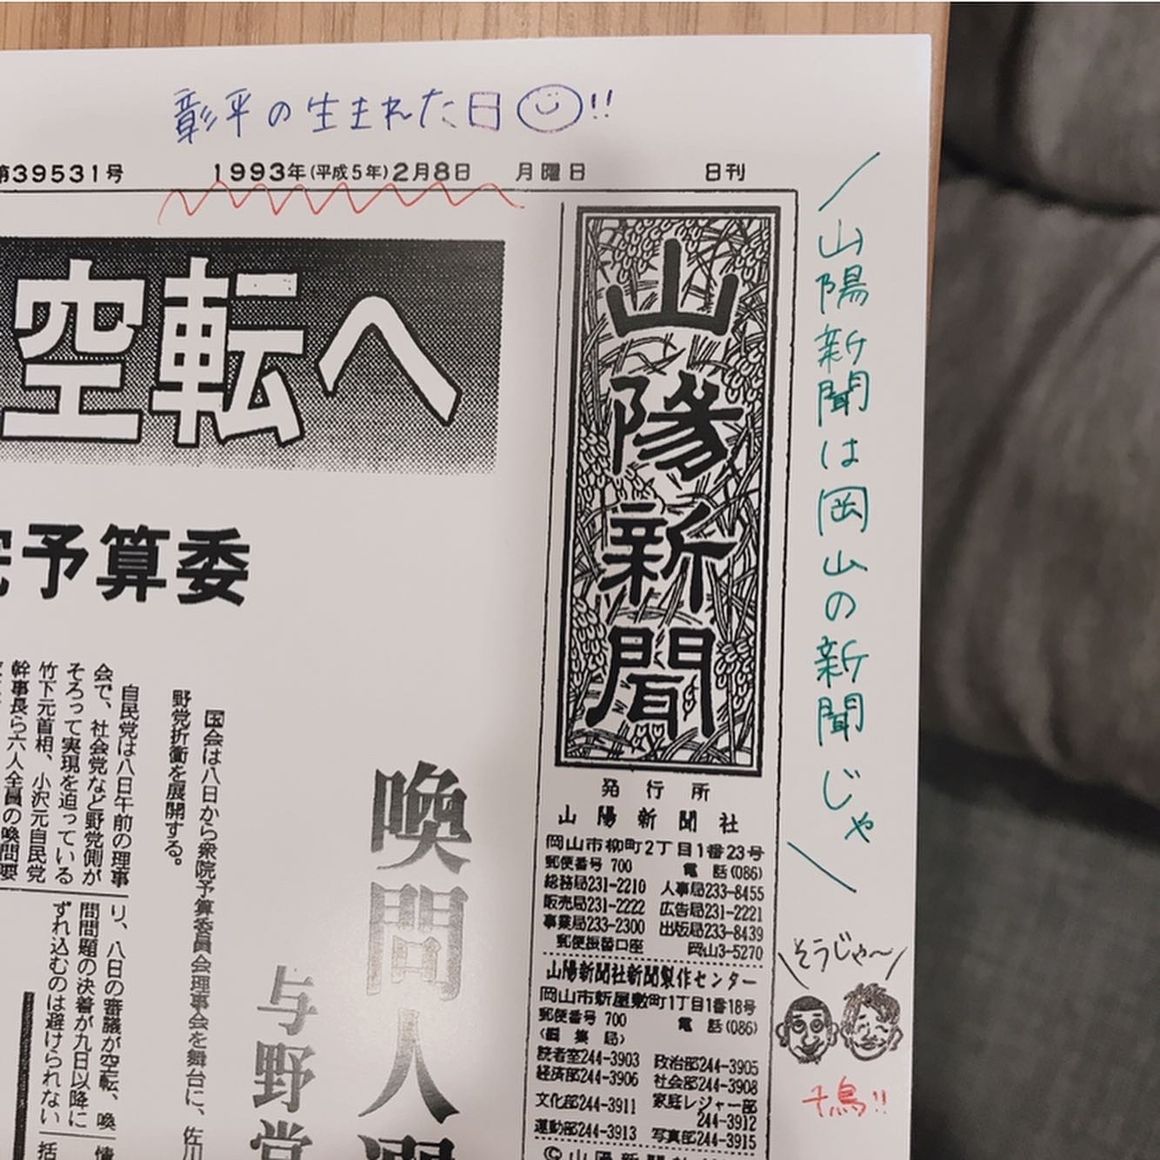 彰平の生まれた日!!
第39531号 1993年(平成5年)2月8日 月曜日 日刊
山陽新聞
発行所
山陽新聞社
岡山市柳町2丁目1番23号
郵便番号 700 電話(086)
総務局231-2210 人事局233-8455
販売局231-2222 広告局231-2221
事業局233-2300 出版局233-8439
郵便振替口座 岡山3-5270
山陽新聞社新聞製作センター
岡山市新屋敷町1丁目1番18号
郵便番号 700 電話(086)
(編集局)
読者室244-3903 政治部244-3905
経済部244-3906 社会部244-3908
文化部244-3911 家庭レジャー部
244-3912
運動部244-3913 写真部244-3915
©山陽新聞
山陽新聞は岡山の新聞じゃ
そうじゃ〜
千鳥!!
空転へ
予算委
喚問人
与野党
国会は八日から衆院予算委員会理事会を舞台に、佐川
野党折衝を展開する。
自民党は八日午前の理事
会で、社会党など野党側が
そろって実現を迫っている
竹下元首相、小沢元自民党
幹事長ら六人全員の喚問要
り、八日の審議が空転、喚
問問題の決着が九日以降に
ずれ込むのは避けられない
情
括